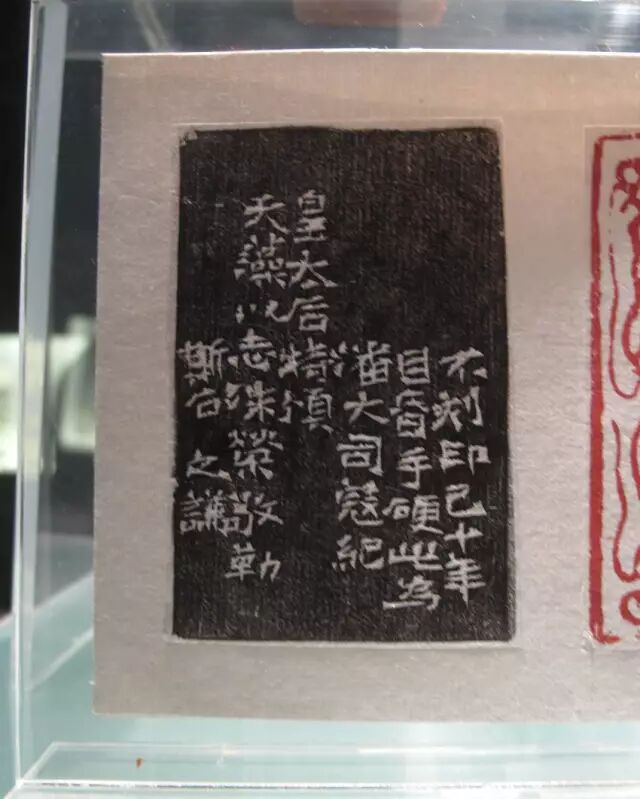 不刻印已十年
目昏手硬此為
潘大司寇紀
皇太后特頒
天藻以志殊榮敬勒
斯石之謙